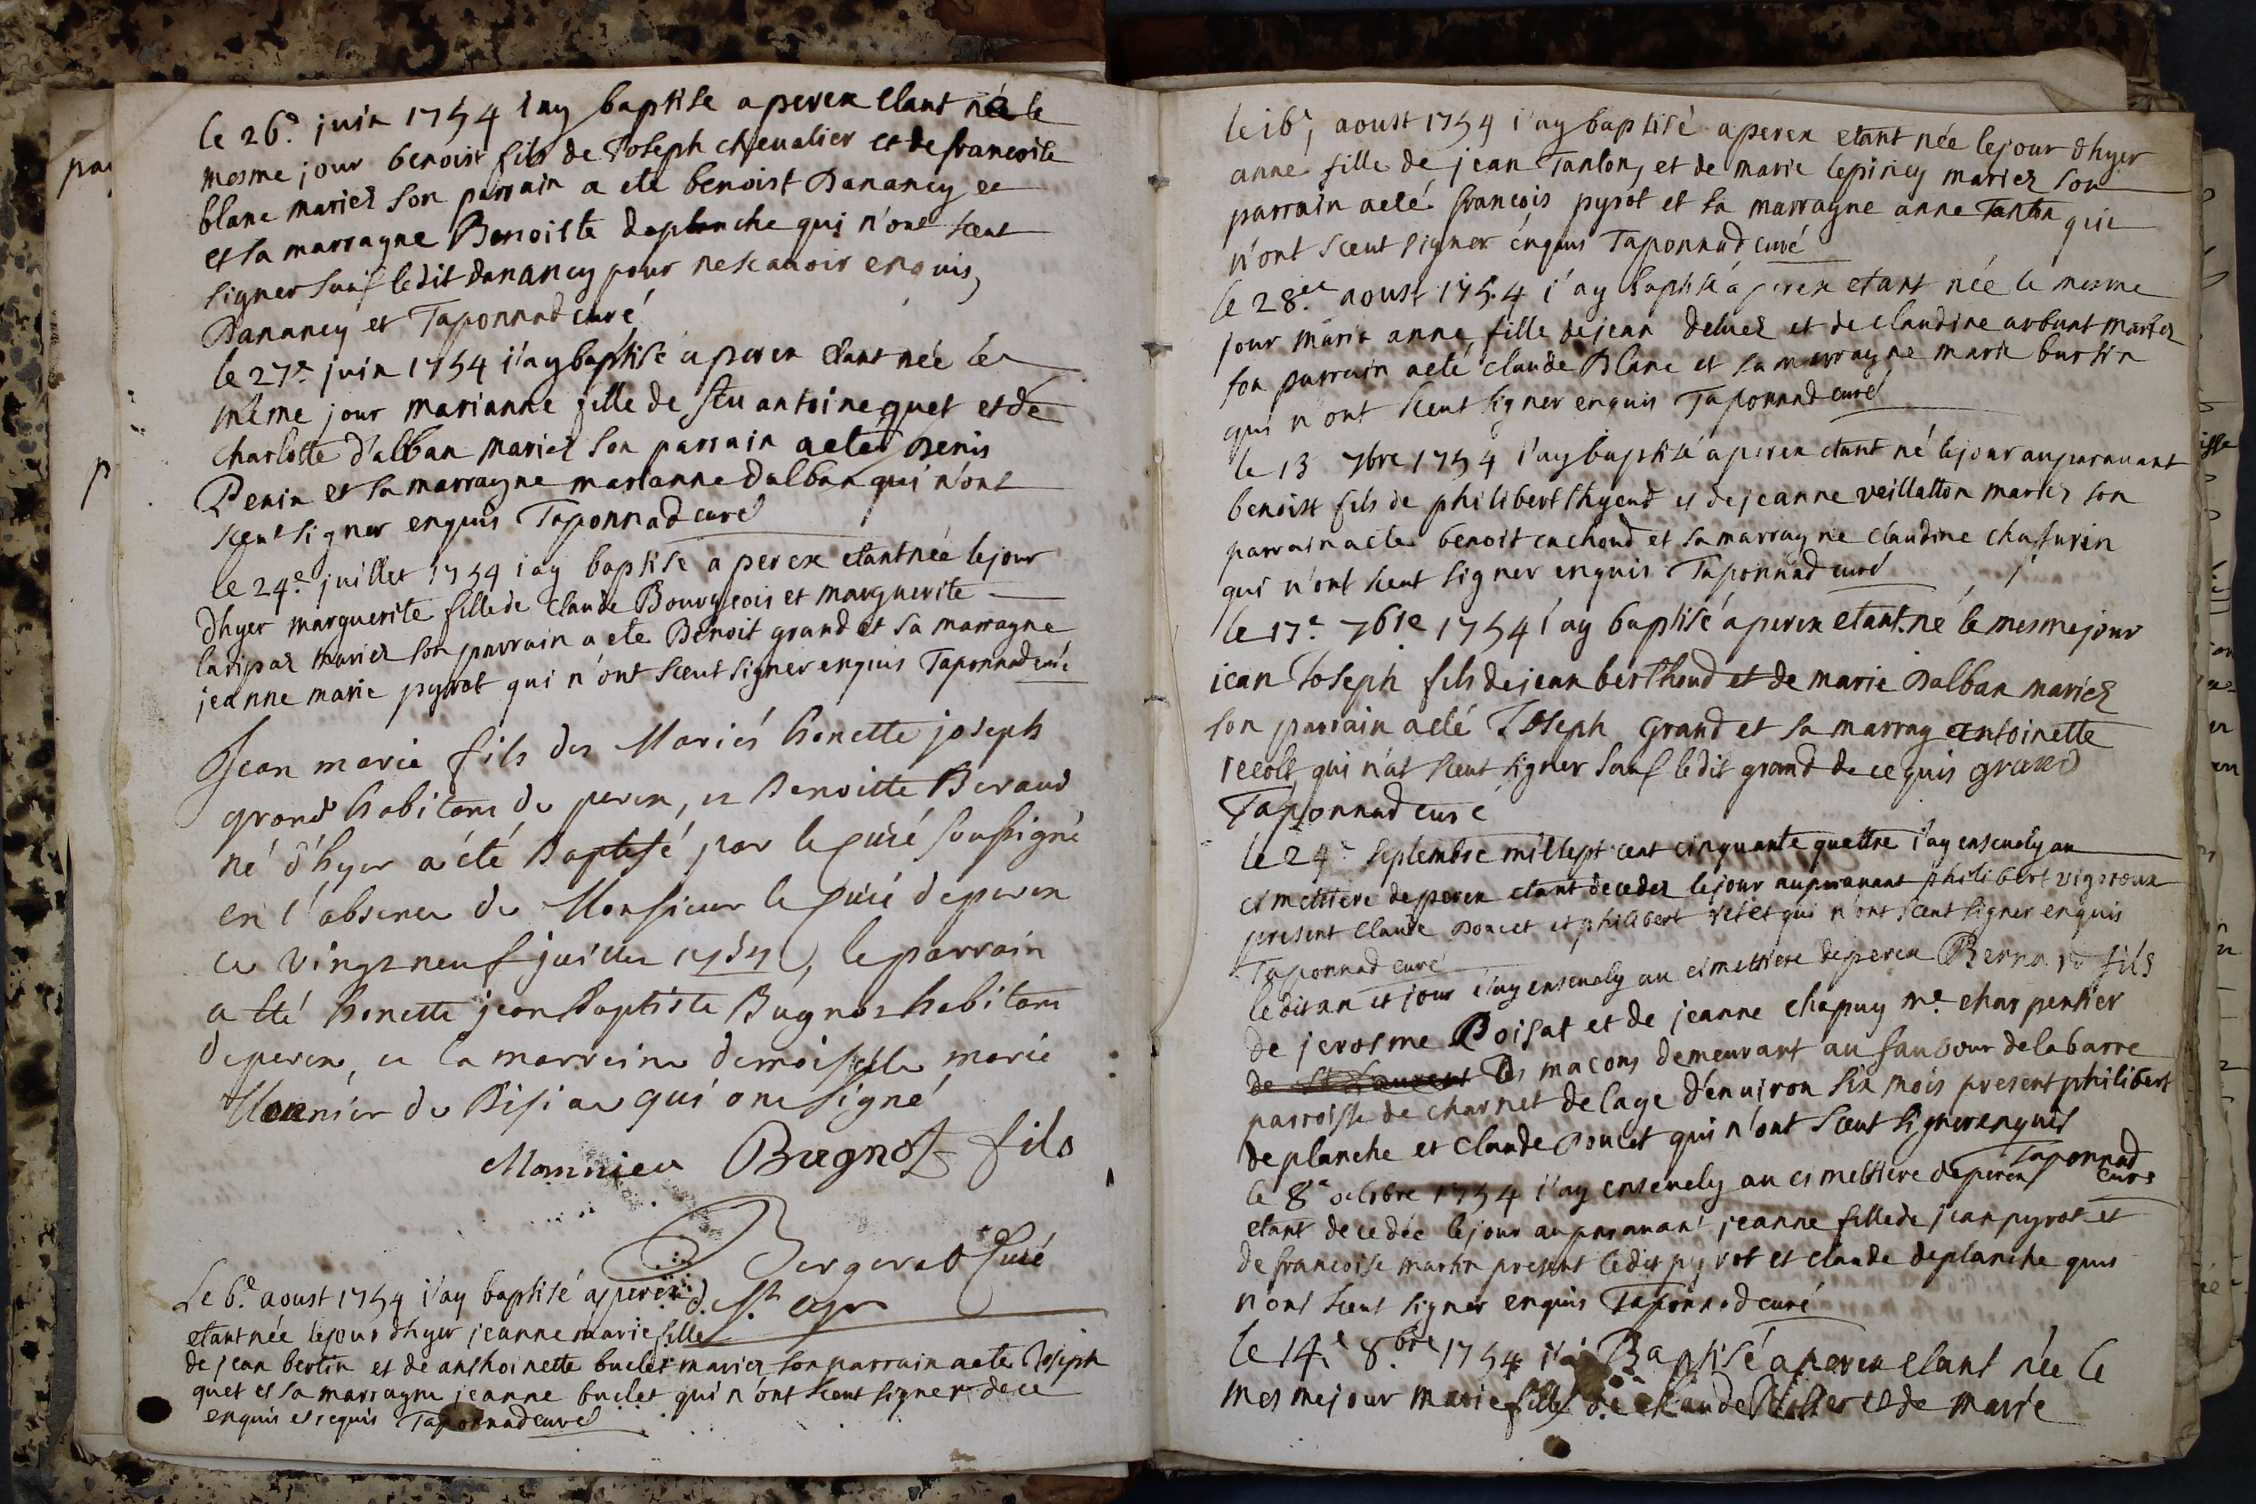 le 26e juin 1754 i'ay baptise a perex etant née le
mesme jour benoist fils de Joseph chevalier et de francoise
blanc mariez son parrain a ete benoist Danancy et
et sa marragne Benoiste deplanche qui n'ont sceut
signer sauf ledit danancy pour ne scavoir enquis,
Danancy et Taponnad curé
le 27e juin 1754 i'ay baptisé a perex etant née le
même jour marianne fille de feu antoine guet et de
charlotte d'alban mariez son parrain a eté denis
Penin et sa marragne marianne dalban qui n'ont
sceut signer enquis Taponnad curé
le 24e juillet 1754 i'ay baptise a perex etant née le jour
dhyer marguerite fille de claude Bourgeois et marguerite
laripaz mariez son parrain a ete Benoit grand et sa marragne
jeanne marie pyrot qui n'ont sceut signer enquis Taponnad curé
Jean marie fils des Mariés honette joseph
grand habitant de perex, et Benoitte Beraud
né d'hyer a été Baptisé par le Curé soussigné
en l'absence de Monsieur le Curé de perex
ce vingt neuf juillet 1754, le parrain
a été honette jean Baptiste Bugnot habitant
de perex, et la marreine demoiselle marie
Monnier de Bisiat qui ont signé
Monnier Bugnot fils
Bergerat Curé
d. St. cyr
Le 6e aoust 1754 i'ay baptisé a perex
etant née le jour dhyer jeanne marie fille
de jean bertin et de anthoinette buclet mariez son parrain a ete Joseph
guet et sa marragne jeanne buclet qui n'ont sceut signer de ce
enquis et requis Taponnad curé
le 16e, aoust 1754 i'ay baptisé a perex etant née le jour dhyer
anne fille de jean Tanton, et de marie lepincy mariez son
parrain a eté francois pyrot et sa marragne anne Tanton qui
n'ont sceut signer enquis Taponnad curé
le 28e aoust 1754 i'ay baptisé a perex etant née le mesme
jour marie anne, fille de jean deluez et de claudine arbunt mariez
son parrain a eté claude Blanc et sa marragne marie burtin
qui n'ont sceut signer enquis Taponnad curé
le 13 7bre 1754 i'ay baptisé a perex etant né le jour auparavant
benoist fils de philibert thyend et de jeanne veillatton mariez son
parrain a ete benoit cachoud et sa marragne claudine chafurin
qui n'ont sceut signer enquis Taponnad curé
le 17e 7bre 1754 i'ay baptisé a perex etant né le mesme jour
jean Joseph fils de jean berthoud et de marie Dalban mariez
son parrain a eté Joseph Grand et sa marrag antoinette
recolt qui n'at sceut signer sauf ledit grand de ce quis grand
Taponnad curé
le 24e septembre mil sept cent cinquante quattre i'ay ensevely au
cimettiere de perex etant decedez le jour auparavant philibert vigoroux
present Claude Doucet et philibert velet qui n'ont sceut signer enquis
Taponnad curé
ledit an et jour i'ay ensevely au cimettiere de perex Bernard fils
de jerosme Poisat et de jeanne chapuy me charpentier
de St Laurent des macons demeurant au faubour de la barre
parroisse de charnet de lage d'environ six mois present philibert
deplanche et Claude Doucet qui n'ont sceut signer enquis
Taponnad curé
le 8e octobre 1754 i'ay ensevely au cimettiere de perex
etant decedée le jour auparavant jeanne fille de jean pyrot et
de francoise martin present ledit pyrot et claude deplanche qui
n'ont sceut signer enquis Taponnad curé
le 14e 8bre 1754 i'ay Baptisé a perex etant née le
mesme jour marie fille de claude et de marie